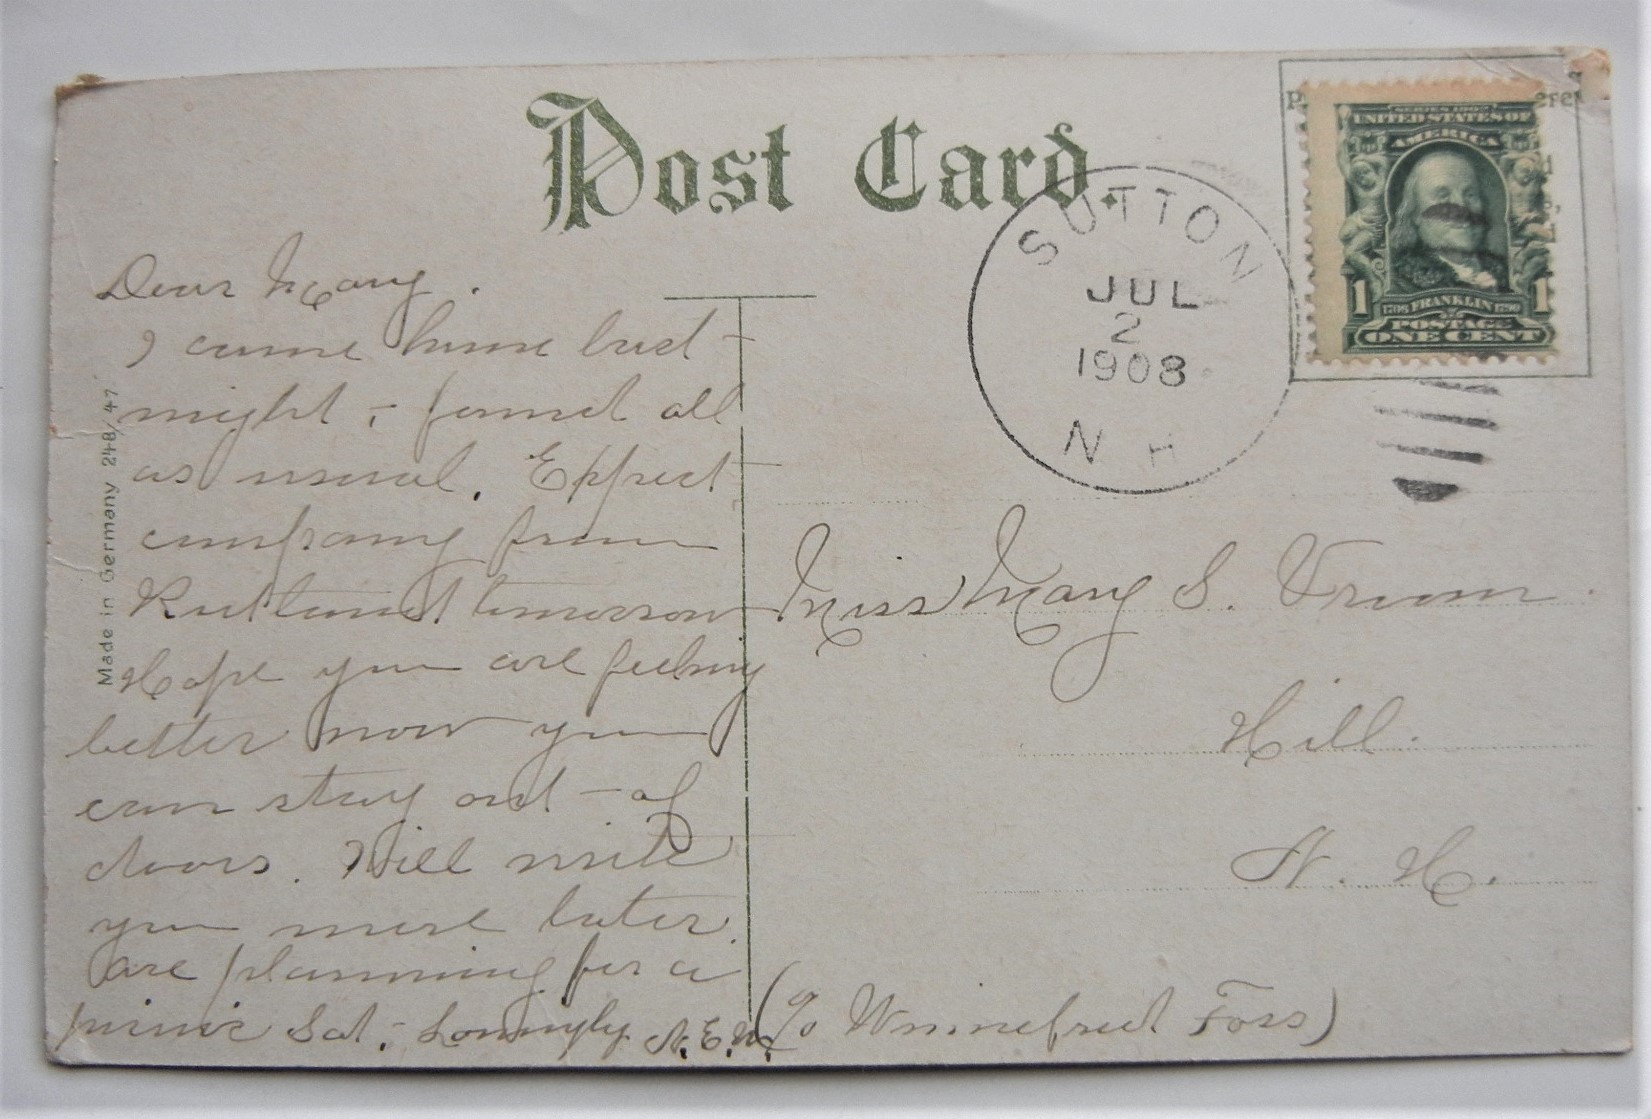 Post Card.
SUTTON
JUL
2
1908
N H
SERIES 1902
UNITED STATES OF
AMERICA
1 1706 FRANKLIN 1790 1
POSTAGE
ONE CENT
Made in Germany 248/47
Dear Mary.
I came home last
night - found all
as usual. Expect
company from
Rutland tomorrow
Hope you are feeling
better now you
can stay out-of
doors. Will write
you more later.
are planning for a
picnic Sat. - Lovingly N.E.W.
Miss Mary S.
Hill.
N. H.
(c/o Winnefred Foss)